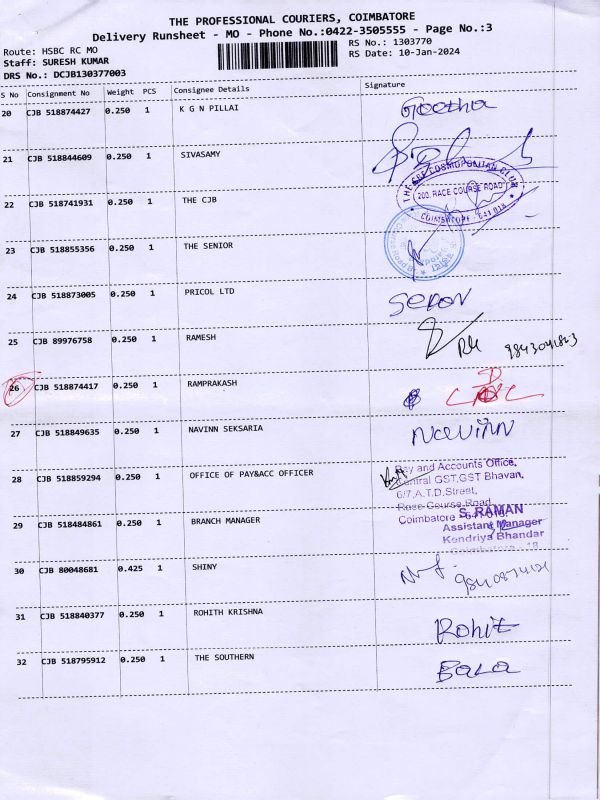 THE PROFESSIONAL COURIERS, COIMBATORE
Delivery Runsheet - MO - Phone No.:0422-3505555 - Page No.:3
Route: HSBC RC MO
RS No.: 1303770
Staff: SURESH KUMAR
RS Date: 10-Jan-2024
DRS No.: DCJB130377003
S No Consignment No Weight PCS Consignee Details Signature
20 CJB 518874427 0.250 1 K G N PILLAI Geetha
21 CJB 518844609 0.250 1 SIVASAMY
THE COSMOPOLITAN CLUB
200, RACE COURSE ROAD
COIMBATORE - 641 018
22 CJB 518741931 0.250 1 THE CJB
23 CJB 518855356 0.250 1 THE SENIOR
24 CJB 518873005 0.250 1 PRICOL LTD
25 CJB 89976758 0.250 1 RAMESH
26 CJB 518874417 0.250 1 RAMPRAKASH
27 CJB 518849635 0.250 1 NAVINN SEKSARIA Navinn
28 CJB 518859294 0.250 1 OFFICE OF PAY&ACC OFFICER
Pay and Accounts Office,
Central GST,GST Bhavan,
6/7,A.T.D.Street,
Race Course Road
Coimbatore - 641 018.
29 CJB 518484861 0.250 1 BRANCH MANAGER
S. RAMAN
Assistant Manager
Kendriya Bhandar
Coimbatore - 18
30 CJB 80048681 0.425 1 SHINY
31 CJB 518840377 0.250 1 ROHITH KRISHNA Rohit
32 CJB 518795912 0.250 1 THE SOUTHERN Bala